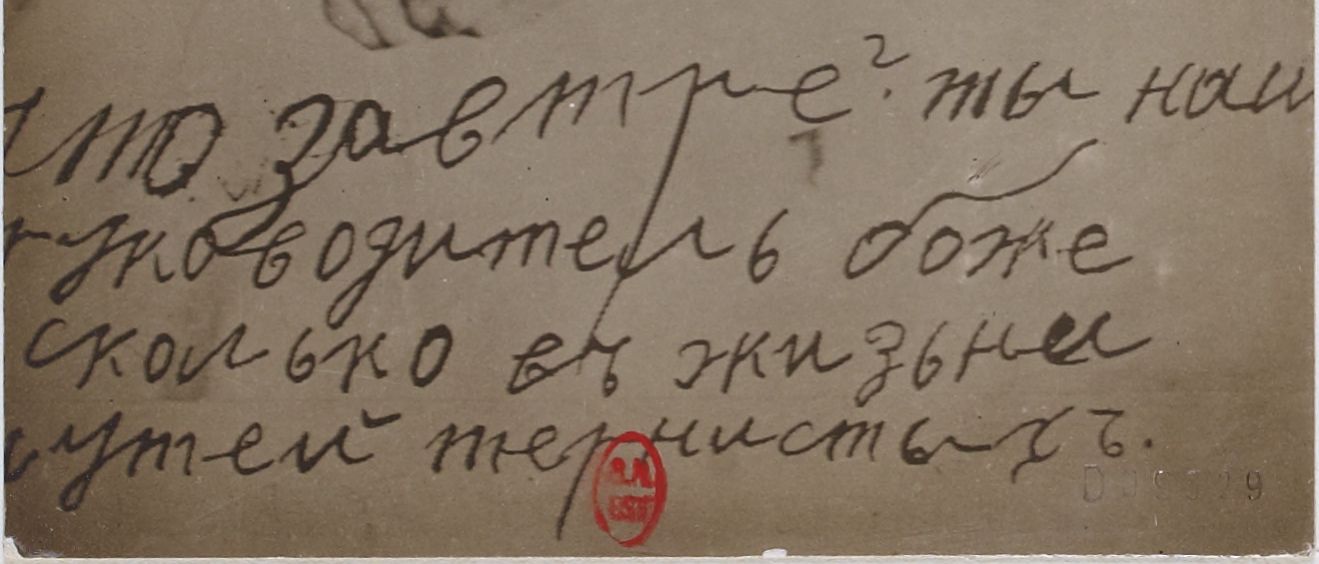 что завтре? ты наш
руководитель боже
сколько въ жизьни
путей тернистыхъ.